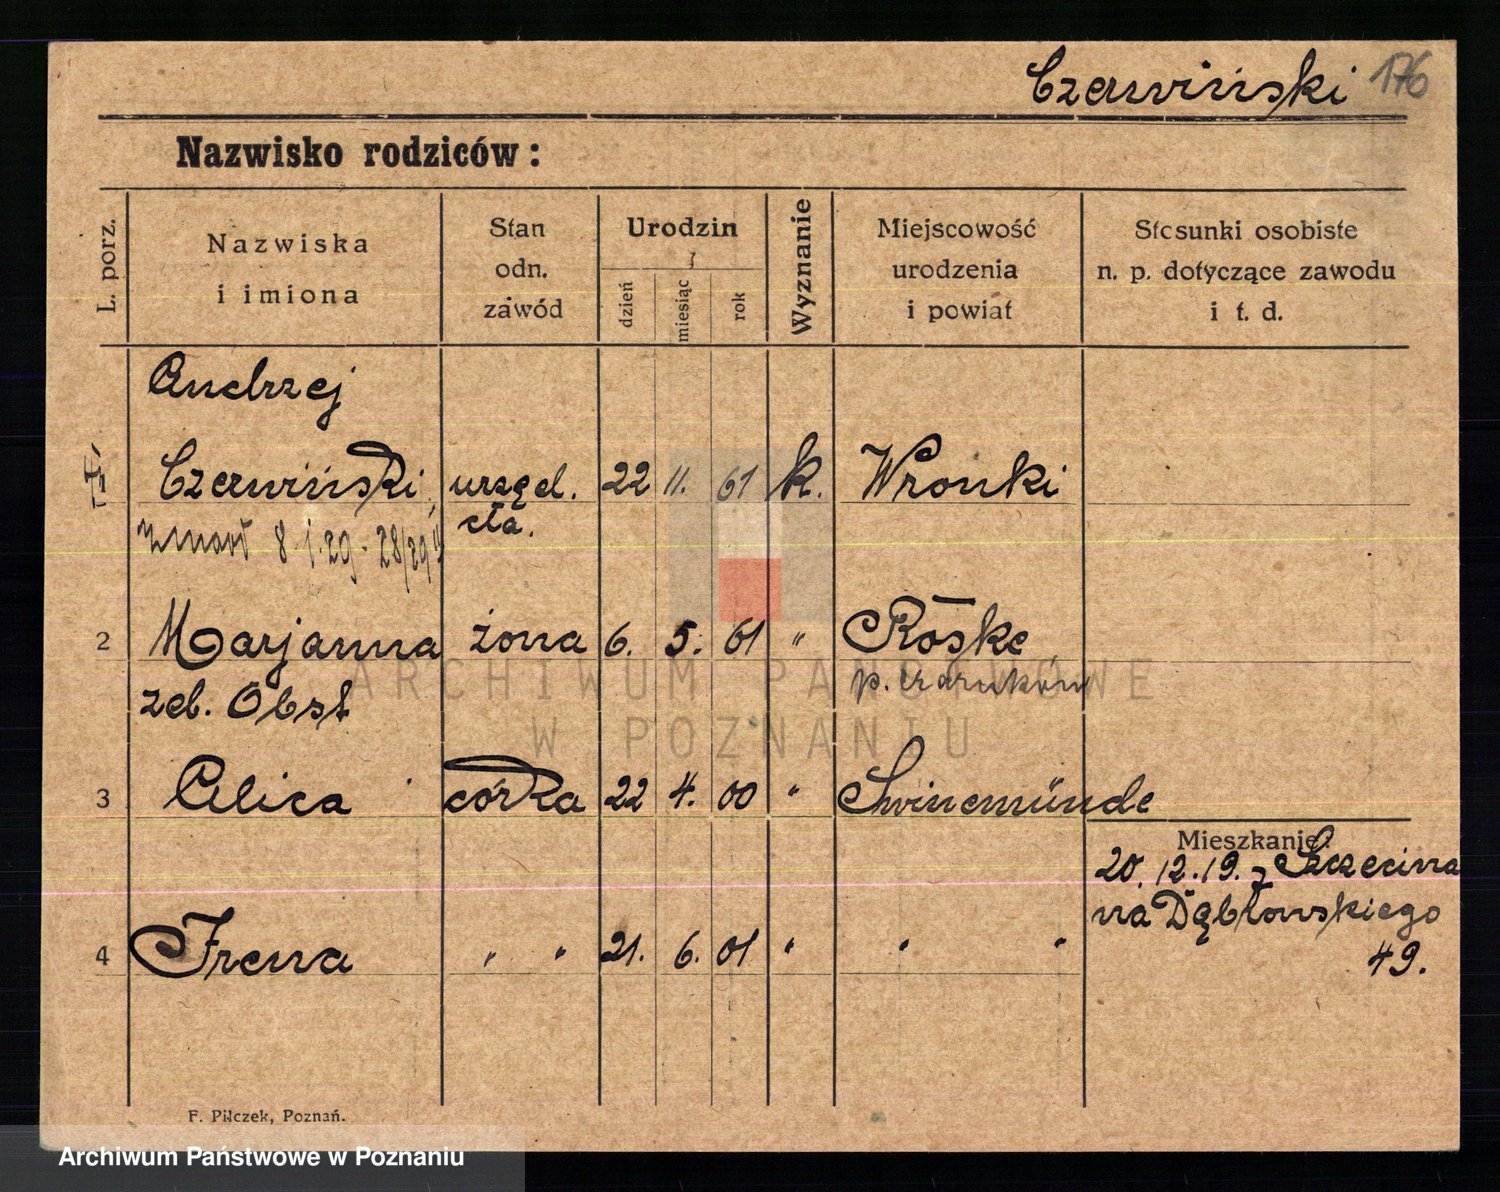 Czerwiński 176
Nazwisko rodziców:
L. porz.
Nazwiska
i imiona
Stan
odn.
zawód
Urodzin
dzień
miesiąc
rok
Wyznanie
Miejscowość
urodzenia
i powiat
Stosunki osobiste
n. p. dotyczące zawodu
i t. d.
Andrzej
Czerwiński urzęd. 22 11. 61 k. Wronki
cła.
zmarł 8.1.29 - 28/29
2 Marjanna żona 6. 5. 61 " Roske
zd. Obst p. Czarnków
3 Alica córka 22 4. 00 " Swinemünde
Mieszkanie:
20.12.19. z Szczecina
na Dąbrowskiego
49.
4 Irena " " 21. 6. 01 " " "
F. Pilczek, Poznań.
ARCHIWUM PAŃSTWOWE
W POZNANIU
Archiwum Państwowe w Poznaniu